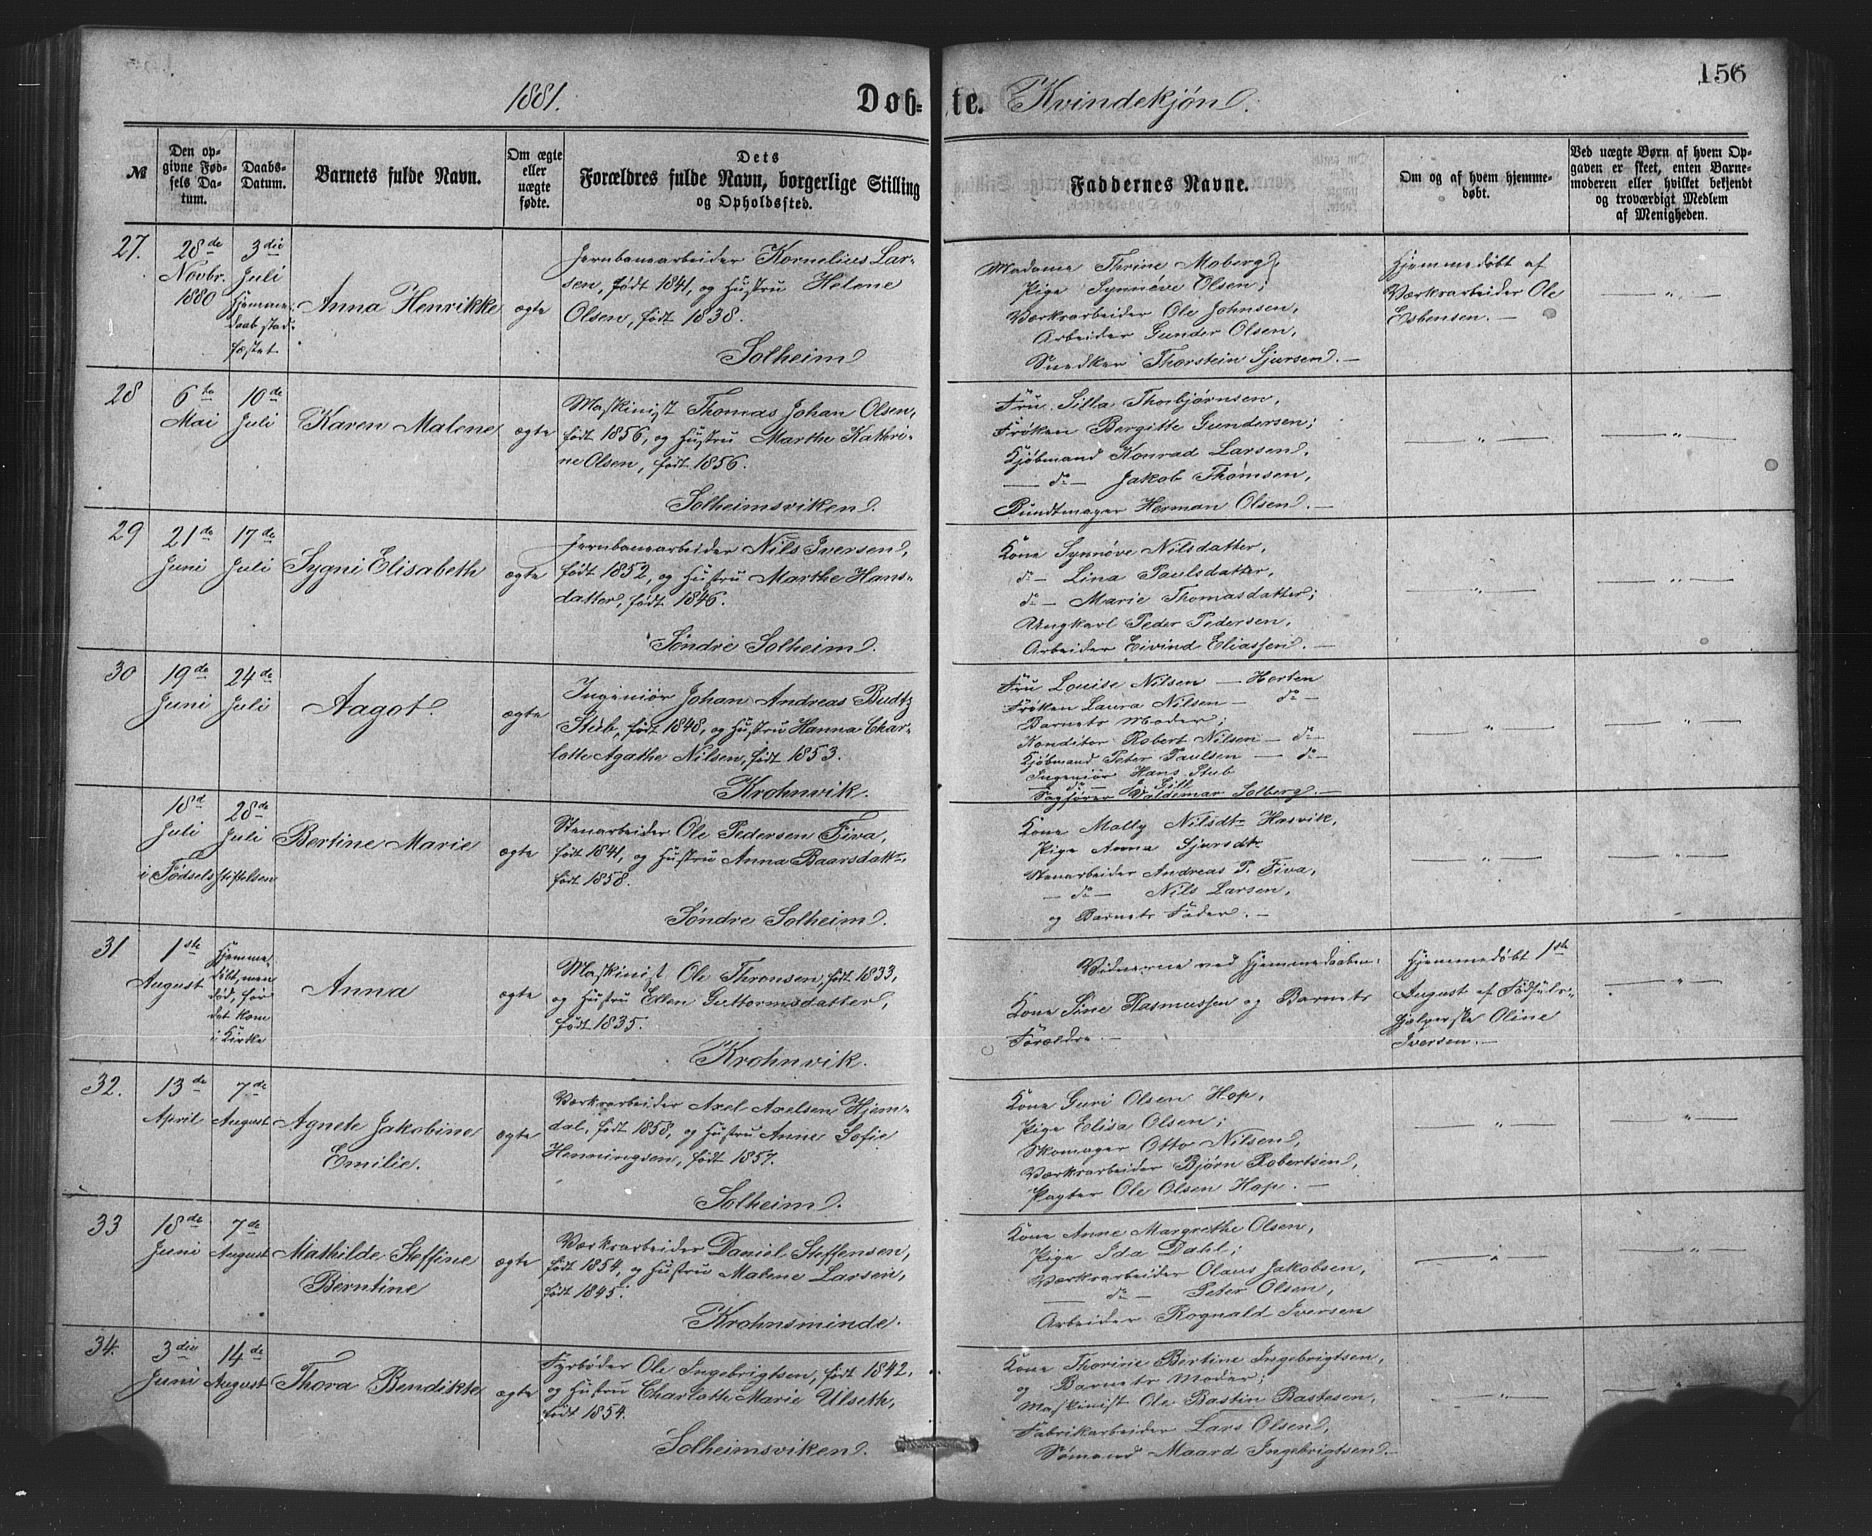 156
1881.
Døb=te. Kvindekjøn.
№
Den op-
givne Fød-
sels Da-
tum.
Daabs-
Datum.
Barnets fulde Navn.
Om ægte
eller
uægte
fødte.
Dets
Forældres fulde Navn, borgerlige Stilling
og Opholdssted.
Faddernes Navne.
Om og af hvem hjemme-
døbt.
Ved uægte Børn af hvem Op-
gaven er skeet, enten Barne-
moderen eller hvilket bekjendt
og troværdigt Medlem
af Menigheden.
27.
28de
Novbr.
1880
3die
Juli
Hjemme-
daab stad-
fæstet
Anna Henrikke
ægte
Jernbanearbeider Kornelius Lar-
sen, født 1841, og Hustru Helene
Olsen, født 1838.
Solheim.
Madame Thrine Moberg,
Pige Synnøve Olsen;
Værksarbeider Ole Johnsen,
Arbeider Gunder Olsen,
Snedker Thorstein Sjursen. —
Hjemmedøbt af
Værksarbeider Ole
Esbensen. —
— " —
28
6te
Mai
10de
Juli
Karen Malene
ægte
Maskinist Thomas Johan Olsen,
født 1856, og Hustru Marthe Kathri-
ne Olsen, født 1856.
Solheimsviken.
Fru Silla Thorbjørnsen,
Frøken Bergitte Gundersen;
Kjøbmand Konrad Larsen,
— do — Jakob Thomsen,
Bundtmager Herman Olsen. —
— " —
— " —
29
21de
Juni
17de
Juli
Sygni Elisabeth
ægte
Jernbanearbeider Nils Iversen,
født 1852, og Hustru Marthe Hans-
datter, født 1846.
Søndre Solheim.
Kone Synnøve Nilsdatter,
do — Lina Paulsdatter,
do — Marie Thomasdatter;
Ungkarl Peder Pedersen,
Arbeider Eivind Eliassen. —
— " —
— " —
30
19de
Juni
24de
Juli
Aagot.
ægte
Ingeniør Johan Andreas Budtz
Stub, født 1848, og Hustru Hanna Char-
lotte Agathe Nilsen, født 1853.
Krohnvik.
Fru Louise Nilsen — Horten
Frøken Laura Nilsen — do —
Barnets Moder;
Konditor Robert Nilsen — do —
Kjøbmand Peter Paulsen — do —
Ingeniør Hans Stub
— do — Gill
Sagfører Valdemar Solberg. —
— " —
— " —
18d
Juli
28de
Juli
i Fødselsstiftelsen
Bertine Marie
ægte
Stenarbeider Ole Pedersen Fiva,
født 1841, og Hustru Anna Baarsdatr.
født 1858.
Søndre Solheim.
Kone Mally Nilsdtr Hasvik,
Pige Anna Sjursdtr
Stenarbeider Andreas P. Fiva,
— do — Nils Larsen,
og Barnets Fader. —
— " —
— " —
31
1ste
August
Hjemme-
døbt, men
død, før
det kom
i Kirke
Anna
ægte
Maskinist Ole Thronsen, født 1833,
og Hustru Ellen Guttormsdatter,
født 1835.
Krohnvik.
Vidnerne ved Hjemmedaaben.
Kone Sine Rasmussen og Barnets
Forældre. —
Hjemmedøbt 1ste
August af Fødsels-
hjelperske Oline
Iversen. —
— " —
32.
13de
April
7de
August
Agnete Jakobine
Emilie.
ægte
Værksarbeider Axel Axelsen Hjem-
dal, født 1858, og Hustru Anne Sofie
Henningsen, født 1857.
Solheim.
Kone Guri Olsen Hop,
Pige Elisa Olsen;
Skomager Otto Nilsen,
Værksarbeider Bjørn Robertsen,
Pagter Ole Olsen Hop. —
— " —
— " —
33
18de
Juni
7de
August
Mathilde Steffine
Berntine
ægte
Værksarbeider Daniel Steffensen,
født 1854, og Hustru Malene Larsen,
født 1845.
Krohnsminde.
Kone Anne Margrethe Olsen,
Pige Ida Dahl;
Værksarbeider Olaus Jakobsen,
— do — Peter Olsen,
Arbeider Rognald Iversen
— " —
— " —
34.
3die
Juni
14de
August
Thora Bendikte
ægte
Fyrbøder Ole Ingebrigtsen, født 1842.
og Hustru Charlotte Marie Ulseth,
født 1854.
Solheimsviken.
Kone Thorine Bertine Ingebrigtsen,
og Barnets Moder;
Maskinist Ole Bastin Bastesen,
Fabrikarbeider Lars Olsen,
Sømand Maard Ingebrigtsen. —
— " —
— " —